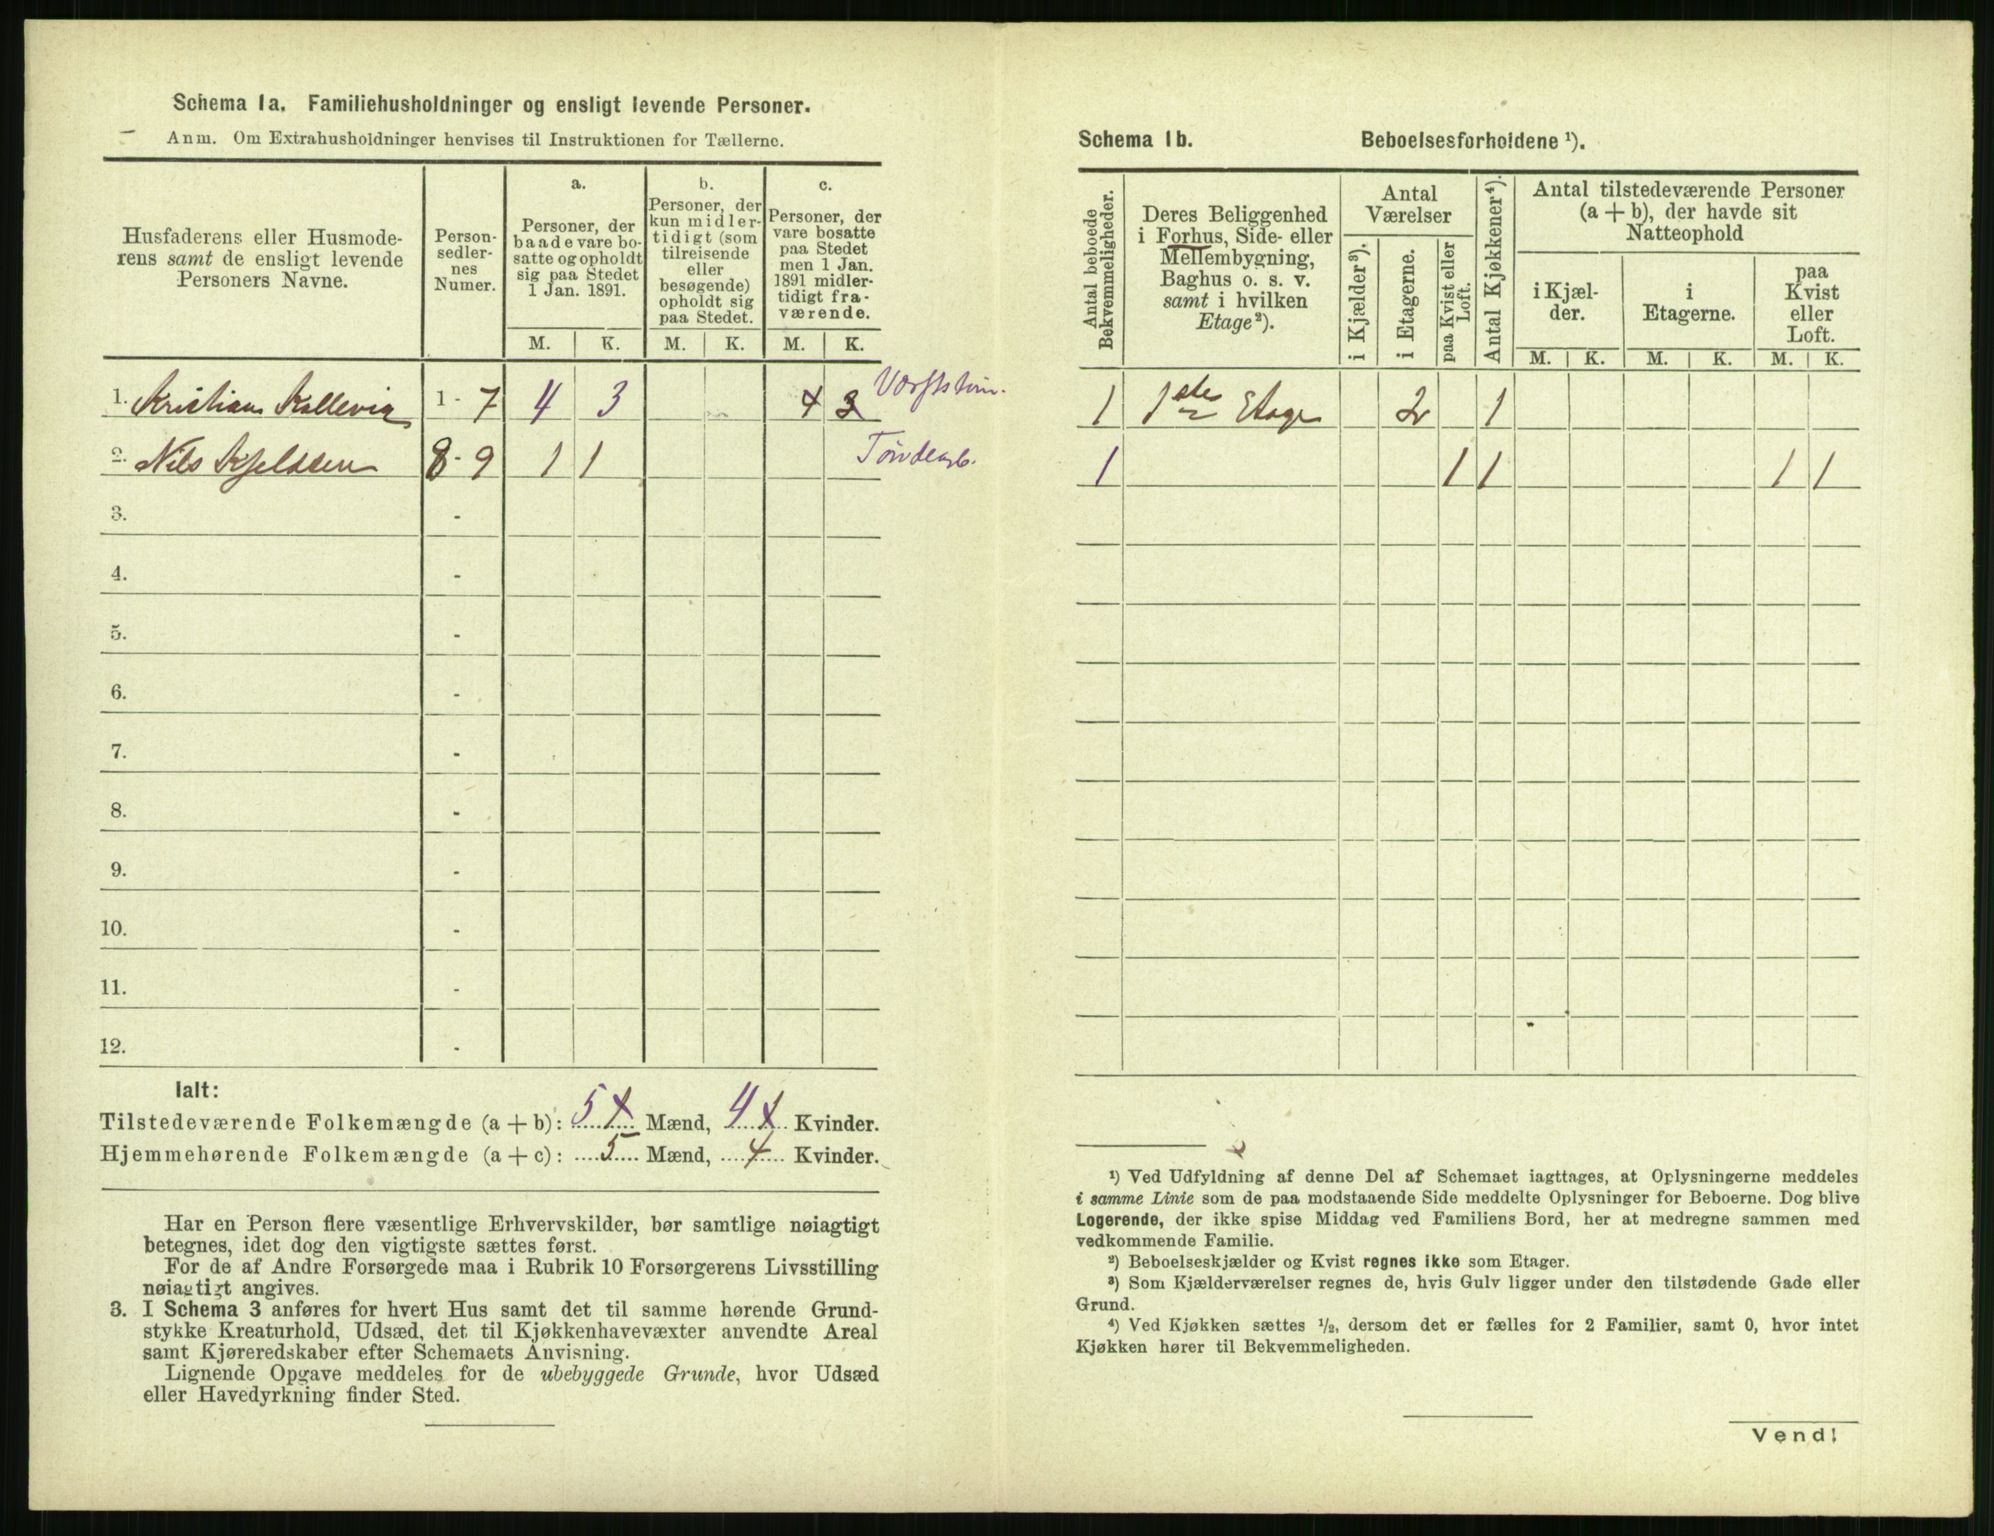 Schema 1a. Familiehusholdninger og ensligt levende Personer.
Anm. Om Extrahusholdninger henvises til Instruktionen for Tællerne.
Husfaderens eller Husmode-
rens samt de ensligt levende
Personers Navne.
Person-
sedler-
nes
Numer.
a.
Personer, der
baade vare bo-
satte og opholdt
sig paa Stedet
1 Jan. 1891.
b.
Personer, der
kun midler-
tidigt (som
tilreisende
eller
besøgende)
opholdt sig
paa Stedet.
c.
Personer, der
vare bosatte
paa Stedet
men 1 Jan.
1891 midler-
tidigt fra-
værende.
M. K. M. K. M. K.
1. Kristian Kallevig 1 - 7 4 3 4 3
2. Nils Kjeldsen 8 - 9 1 1
3. -
4. -
5. -
6. -
7. -
8. -
9. -
10. -
11. -
12. -
Ialt:
Tilstedeværende Folkemængde (a + b): 5 Mænd, 4 Kvinder.
Hjemmehørende Folkemængde (a + c): 5 Mænd, 4 Kvinder.
Har en Person flere væsentlige Erhvervskilder, bør samtlige nøiagtigt
betegnes, idet dog den vigtigste sættes først.
For de af Andre Forsørgede maa i Rubrik 10 Forsørgerens Livsstilling
nøiagtigt angives.
3. I Schema 3 anføres for hvert Hus samt det til samme hørende Grund-
stykke Kreaturhold, Udsæd, det til Kjøkkenhavevæxter anvendte Areal
samt Kjøreredskaber efter Schemaets Anvisning.
Lignende Opgave meddeles for de ubebyggede Grunde, hvor Udsæd
eller Havedyrkning finder Sted.
Schema 1b. Beboelsesforholdene ¹).
Antal beboede
Bekvemmeligheder.
Deres Beliggenhed
i Forhus, Side- eller
Mellembygning,
Baghus o. s. v.
samt i hvilken
Etage²).
Antal
Værelser
i Kjælder³).
i Etagerne.
paa Kvist eller
Loft.
Antal Kjøkkener⁴).
Antal tilstedeværende Personer
(a + b), der havde sit
Natteophold
i Kjæl-
der.
i
Etagerne.
paa
Kvist
eller
Loft.
M. K. M. K. M. K.
1 1ste Etage 2 1
1 1 1 1 1
¹) Ved Udfyldning af denne Del af Schemaet iagttages, at Oplysningerne meddeles
i samme Linie som de paa modstaaende Side meddelte Oplysninger for Beboerne. Dog blive
Logerende, der ikke spise Middag ved Familiens Bord, her at medregne sammen med
vedkommende Familie.
²) Beboelseskjælder og Kvist regnes ikke som Etager.
³) Som Kjælderværelser regnes de, hvis Gulv ligger under den tilstødende Gade eller
Grund.
⁴) Ved Kjøkken sættes ½, dersom det er fælles for 2 Familier, samt 0, hvor intet
Kjøkken hører til Bekvemmeligheden.
Vend!